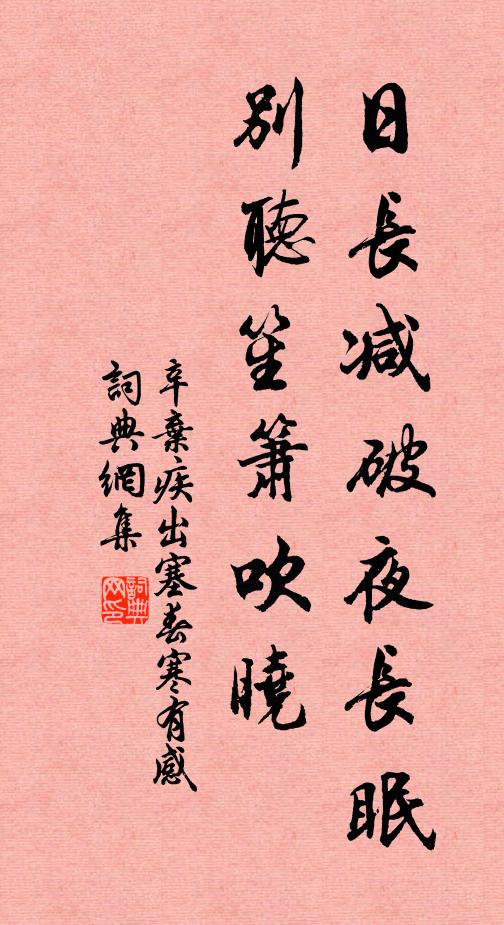 日長减破夜長眠
別聽笙簫吹曉
辛棄疾出塞春寒有感
詞典網集
詞典網印